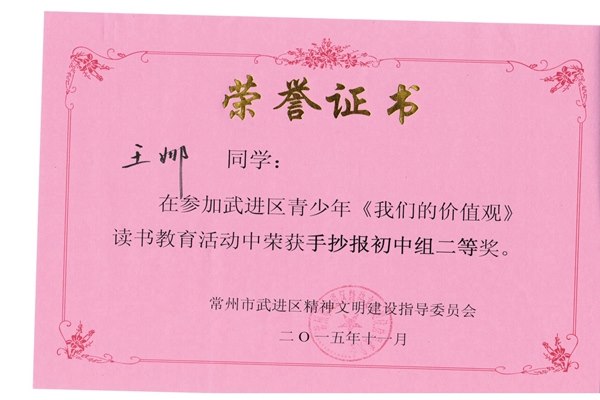 荣誉证书
王娜 同学：
在参加武进区青少年《我们的价值观》
读书教育活动中荣获手抄报初中组二等奖。
常州市武进区精神文明建设指导委员会
二〇一五年十一月